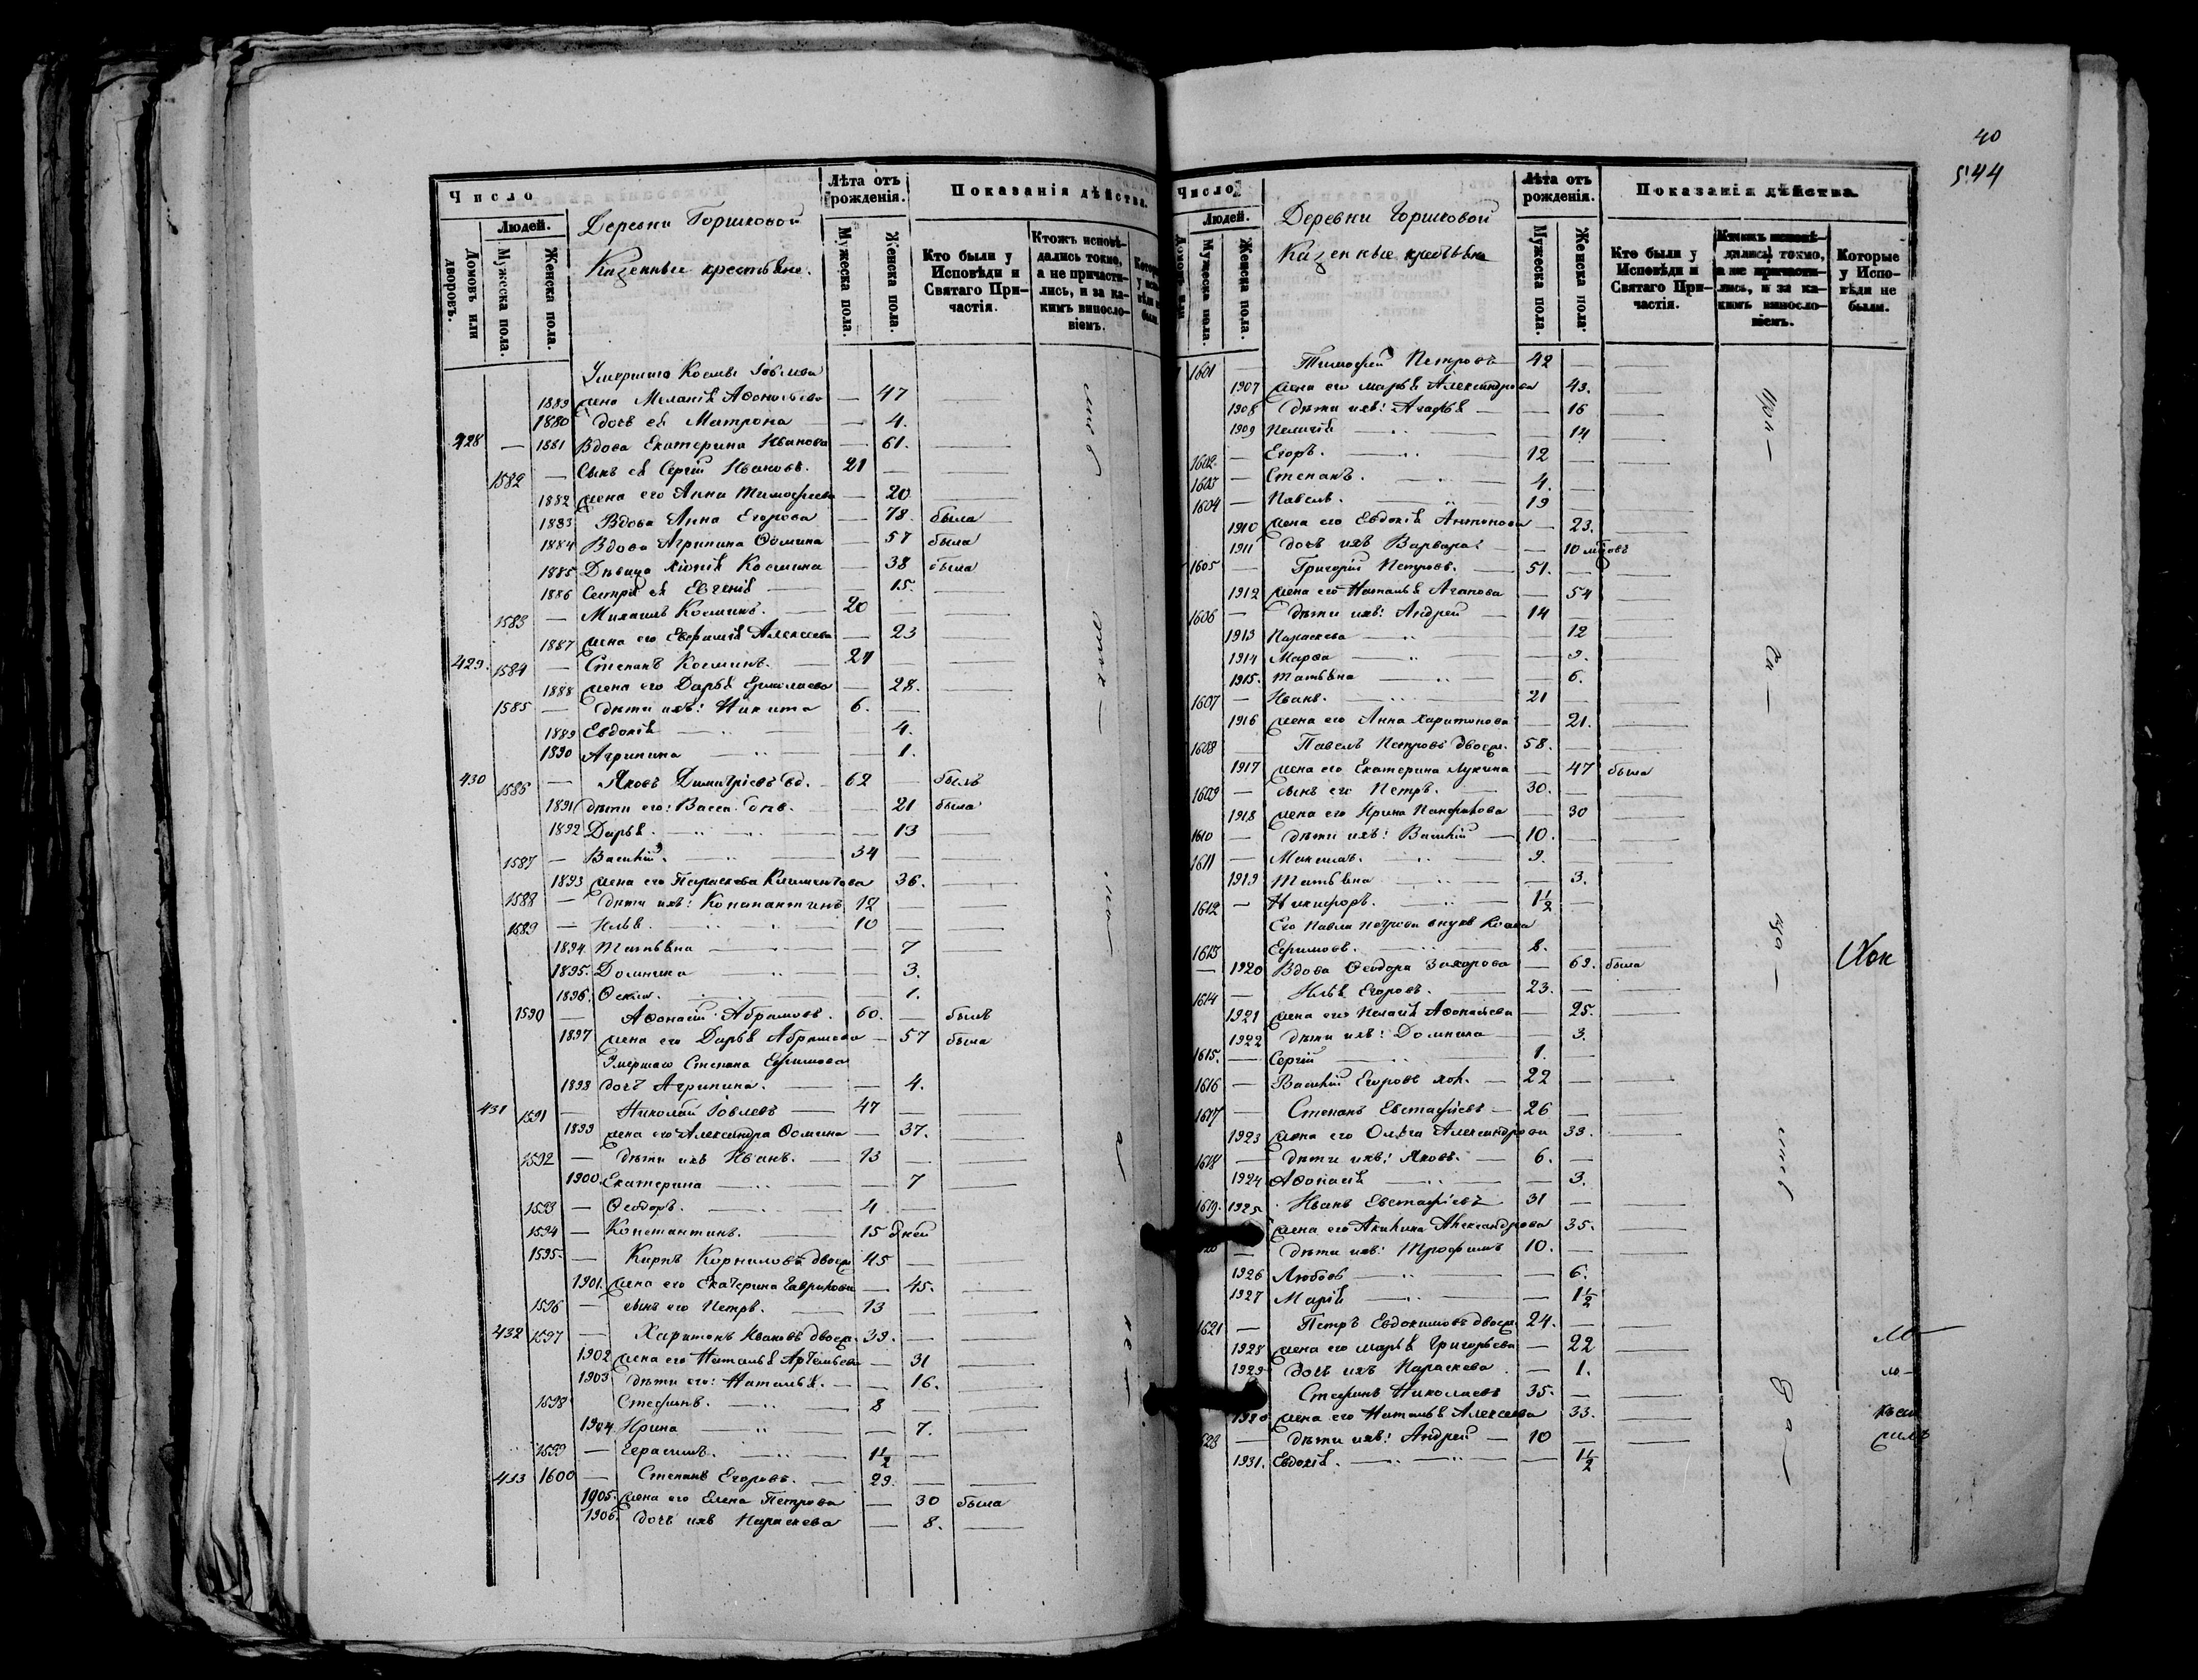 Число
Людей.
Домовъ или дворовъ.
Мужеска пола.
Женска пола.
Деревни Горшковой
Казенные крестьяне.
Лѣта отъ рожденія.
Мужеска пола.
Женска пола.
Показанія дѣйства.
Кто были у Исповѣди и Святаго Причастія.
Ктожъ исповѣдались токмо, а не причастились, и за какимъ винословіемъ.
Умершаго Космы Іовлева
1889 жена Меланія Афонасьева — 47
1880 дочь ея Матрона — 4.
428 — 1881 Вдова Екатерина Иванова — 61.
1582 — Сынъ ея Сергій Ивановъ. 21 —
1882 жена его Анна Тимофеева — 20
1883 Вдова Анна Егорова — 78. была
1884 Вдова Агрипина Ѳомина — 57 была
1885 Дѣвица Хіонія Космина — 38 была
1886 Сестра ея Евгенія — 15.
1583 — Михаилъ Косминъ. 20 —
1887 жена его Евфимія Алексеева — 23
429. 1584 — Степанъ Косминъ. — 27
1888 жена его Дарья Ермолаева — 28.
1585 — дѣти ихъ: Никита 6. —
1889 Евдокія — 4.
1890 Агрипина — 1.
430 1586 — Яковъ Димитріевъ вд. 62 — былъ
1891 дѣти его: Васса дѣв. — 21 была
1892 Дарья. — 13
1587 — Василій. 34 —
1893 жена его Параскева Климентова 36.
1588 — дѣти ихъ: Константинъ 12 —
1589 — Илья. 10 —
1894. Татьяна — 7
1895. Домника — 3.
1896. Фекла. — 1.
1590 — Афонасій Абрамовъ. 60. — былъ
1897 жена его Дарья Абрамова — 57 была
Умершаго Степана Ефимова
1898 дочь Агрипина. — 4.
431 1591 — Николай Іовлевъ — 47 —
1899 жена его Александра Ѳомина — 37.
1592 — дѣти ихъ Иванъ. — 13 —
1900. Екатерина — 7
1593 — Ѳеодоръ. 4 —
1594 — Константинъ. 15 дней
1595. — Кирпъ Корниловъ двоеж 45 —
1901. жена его Екатерина Гаврилова — 45.
1596 — сынъ его Петръ. 13 —
432 1597 — Харитонъ Ивановъ двоеж. 39. —
1902 жена его Наталья Артемьева — 31
1903 дѣти его: Наталья. — 16.
1598 Стефанъ. 8 —
1904 Ирина — 7.
1599 — Герасимъ. 1½ —
433 1600 — Степанъ Егоровъ. — 29. —
1905. жена его Елена Петрова — 30 была
1906. дочь ихъ Параскева — 8.
40
544
Число
Людей.
Домовъ или
Мужеска пола.
Женска пола.
Деревни Горшковой
Казенные крестьяне
Лѣта отъ рожденія.
Мужеска пола.
Женска пола.
Показанія дѣйства.
Кто были у Исповѣди и Святаго Причастія.
Ктожъ исповѣдались токмо, а не причастились, и за какимъ винословіемъ.
Которые у Исповѣди не были.
1601 — Тимофей Петровъ 42 —
1907 жена его Марья Александрова 43.
1908 дѣти ихъ: Агафья — 16
1909 Пелагія — 14
1602. — Егоръ. 12 —
1603 — Степанъ. 4. —
1604 — Павелъ. 19 —
1910 жена его Евдокія Антонова — 23.
1911 дочь ихъ Варвара — 10 мѣсовъ
1605 — Григорій Петровъ. — 51. —
1912 жена его Наталья Агапова — 54
1606 — дѣти ихъ: Андрей — 14 —
1913 Параскева — 12
1914 Марѳа — 9.
1915. Татьяна — 6.
1607 — Иванъ. 21 —
1916 жена его Анна Харитонова — 21.
1608 — Павелъ Петровъ двоеж. 58. —
1917 жена его Екатерина Лукина — 47 была
1609 — сынъ его Петръ. — 30. —
1918 жена его Ирина Панфилова — 30
1610 — дѣти ихъ: Василій — 10. —
1611 — Максимъ. 9. —
1919 Татьяна — 3.
1612 — Никифоръ. 1½ —
Его Павла Петрова внукъ
1613 Ефимовъ. 8. —
— 1920 Вдова Ѳеодора Захарова — 69. была
1614 — Илья Егоровъ. 23. —
1921 жена его Пелагія Афонасьева — 25.
1922 дѣти ихъ: Домника — 3.
1615. — Сергій 1. —
1616 — Василій Егоровъ хол. — 22 —
1617 — Степанъ Евстафіевъ — 26 —
1923 жена его Ольга Александрова 33.
1618 — дѣти ихъ: Яковъ. — 6. —
1924 Афонасія — 3.
1619. 1925 Иванъ Евстафіевъ 31 —
жена его Акилина Александрова 35.
— дѣти ихъ: Трофимъ 10. —
1926 Любовь — 6.
1927 Марія — 1½
1621 — Петръ Евдокимовъ двоеж. 24. —
1928 жена его Марья Григорьева — 22
1929 дочь ихъ Параскева — 1.
Стефанъ Николаевъ 35. —
1930 жена его Наталья Алексеева 33.
— дѣти ихъ: Андрей — 10 —
1931. Евдокія. — 1½